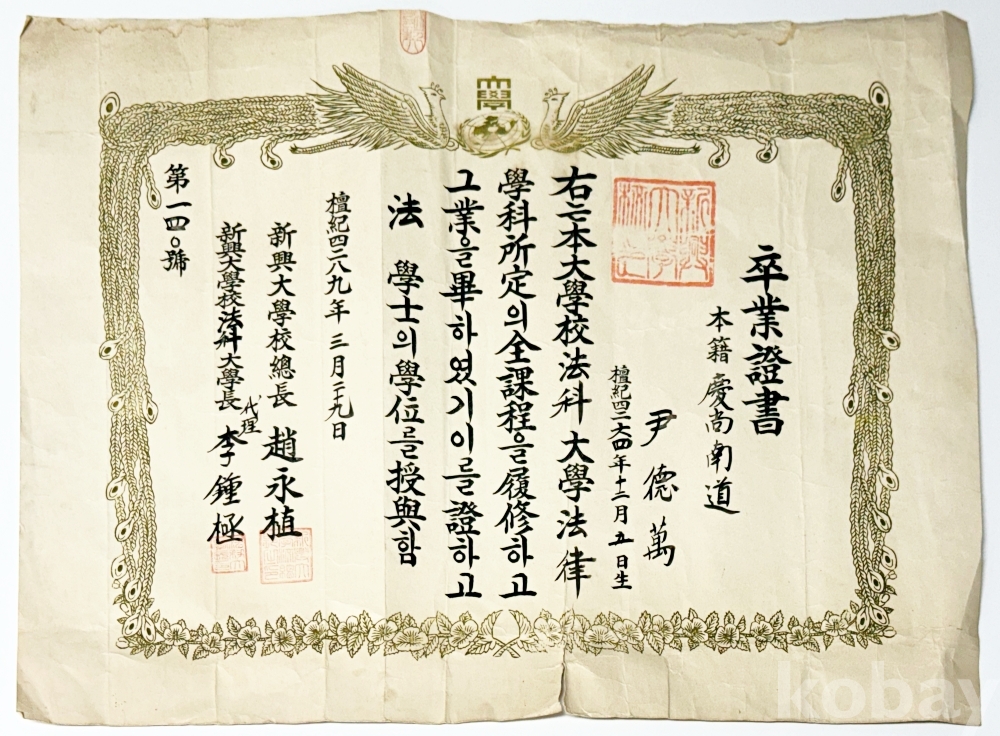 大學
卒業證書
本籍 慶尚南道
尹德萬
檀紀四二六四年十二月五日生
右는本大學校法科大學法律
學科所定의全課程을履修하고
그業을畢하였기이를證하고
法 學士의學位를授與함
檀紀四二八九年三月二十九日
新興大學校總長 趙永植
新興大學校法科大學長代理 李鍾極
第一四〇號
kobay